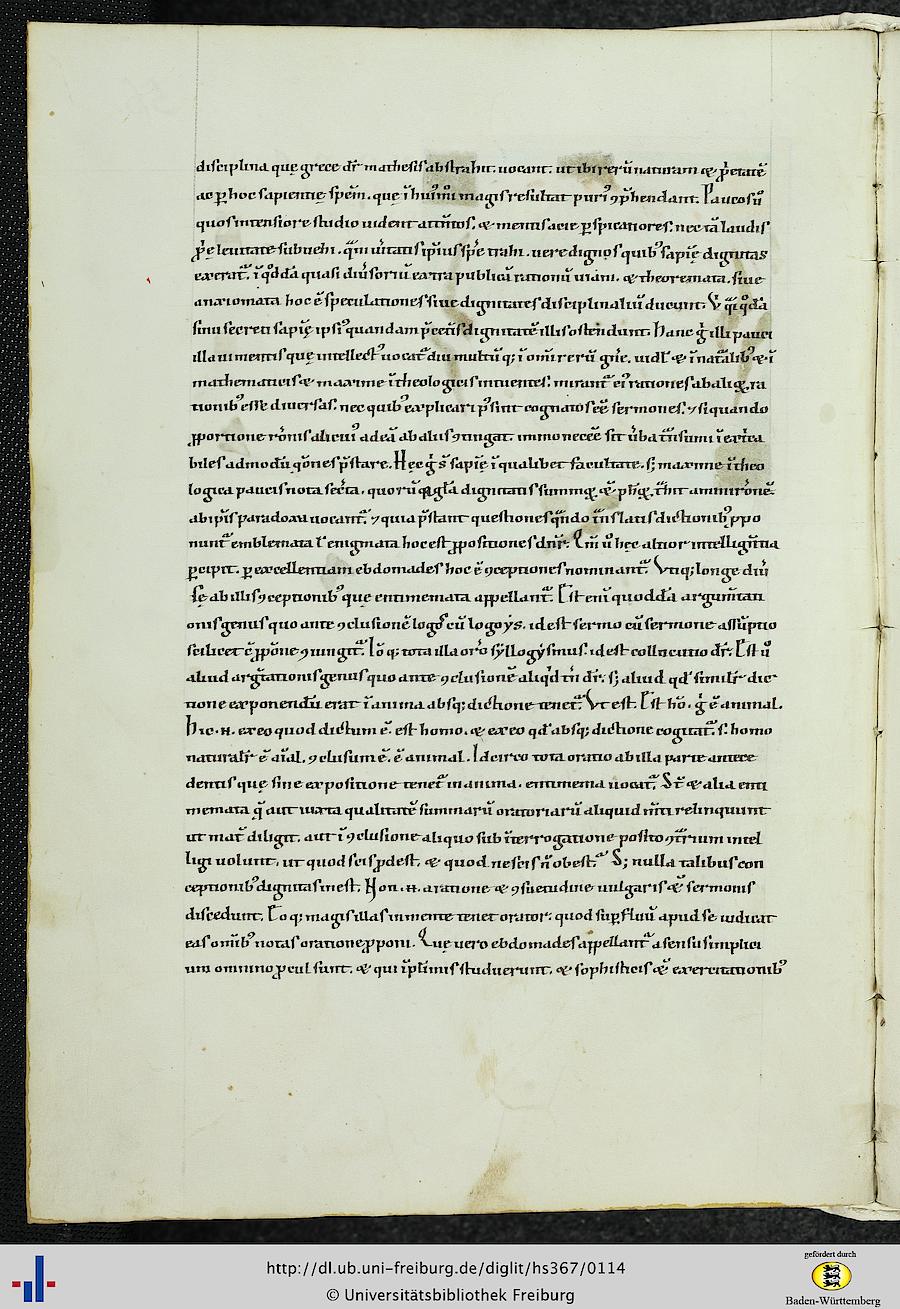 disciplina quę grece dr̄ mathesis abstrahit. uocant. ut ibi rerū naturam & p̄p̄etatē
ac ꝑ hoc sapientię spēm. que ī magis resultat puri ꝯp̄hendant. Paucos ū
quos intensiore studio uident attētos. & mentis acie ꝑspicatiores. nec tā laudis
leuitate subuehi. q̄m ueritatis ipsius spē trahi. uere dignos quibꝰ sapię dignitas
exerat᷑. ī q̄ddā quasi diuersoriū extra publicā rationū uiam. & theoremata. siue
anaxiomata hoc ē speculationes siue dignitates disciplinaliū ducunt.
sinu secreti sapię ipsiꝰ quandam p̄ cet̄is dignitatē illis ostendunt. Hanc ḡ illi pauci
illa ui mentis quę intellectꝰ uocat᷑ diu multūq; ī omī rerū gn̄e. uidl᷑ & ī nat᷑alibꝰ & ī
mathematicis & maxime ī theologicis intuentes. mirant᷑ eiꝰ rationes ab aliq̨ ra
tionibꝰ esse diuersas. nec quibꝰ explicari p̄sint cognatos eē sermones. & si quando
ꝓportione rōnis alicuiꝰ ad eā ab aliis ꝯtingat. immo necēe sit ūba t᷑nsumi
biles admodū qōnes p̄stare. Hęc ḡ s̄ sapię ī qualibet facultate. s; maxime ī theo
logica paucis nota secreta. quorū dignitatis summę
ab ip̄is paradoxa uocant᷑. & quia p̄stant questiones q̄ndo t᷑nslatis dictionibꝰ ꝓpo
nunt᷑ emblemata ł enigmata hoc est ꝓpositiones Qm̄ ū hęc altior intelligētia
ꝑcipit. ꝑ excellentiam ebdomades hoc ē ꝯceptiones nominant᷑. Vtiq; longe diū
sę ab illis ꝯceptionibꝰ que entimemata appellant᷑. Est eni quoddā argum̄tati
onis genus quo ante ꝯclusionē logos cū logoys. id est sermo cū sermone assūptio
scilicet ē ꝓpōne ꝯiungit᷑. Iō q; tota illa orō syllogysmus. id est collucutio dr̄. Est ū
aliud arḡtationis genus quo ante ꝯclusionē aliq̄d tn̄ dr̄. s; aliud qd̄ similr̄ dic
tione exponendū erat ī anima absq; dictione tenet᷑. Vt est. Est hō. ḡ ē animal.
Hic .n. ex eo quod dictum ē. est homo. & ex eo qd̄ absq; dictione cogitat᷑. s. homo
naturalr̄ ē aīal. ꝯclusum ē. ē animal. Idcirco tota oratio ab illa parte antece
dentis quę sine expositione tenet᷑ in anima. entimema uocat᷑. St̄ & alia enti
memata q̄ aut iuxta qualitatē summarū oratoriarū aliquid m̄ti relinquunt
ut mat᷑ diligit. aut ī ꝯclusione aliquo sub īterrogatione posito ꝯt᷑rium intel
ligi uolunt. ut quod scis ꝓdest. & quod nescis n̄ obest. S; nulla talibus con
ceptionibꝰ dignitas inest. Non .n. a ratione & ꝯsuetudine uulgaris & sermonis
discedunt. Eo q; magis illas in mente tenet orator. quod suꝑfluū apud se iudicat
eas om̄ibꝰ notas oratione ꝓponi. Quę uero ebdomades appellant᷑ a sensu simplici
um omnino ꝓcul sunt. & qui ī p̄timis studuerunt. & sophisticis & exercitationibꝰ
http://dl.ub.uni-freiburg.de/diglit/hs367/0114
© Universitätsbibliothek Freiburg
gefördert durch
Baden-Württemberg